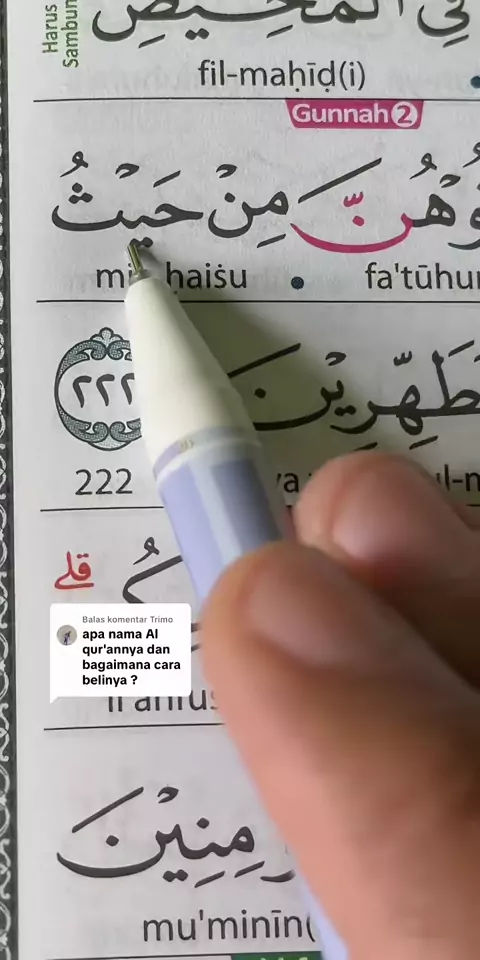 Harus
Sambun
فِى الْمَحِيْضِ
fil-maḥīḍ(i)
Gunnah 2
وْهُنَّ مِنْ حَيْثُ
haiṡu • fa'tūhu
طَهِّرِيْنَ ٢٢٢
222
قلى
Balas komentar Trimo
apa nama Al
qur'annya dan
bagaimana cara
belinya ?
مِنِيْنَ
mu'minīn(